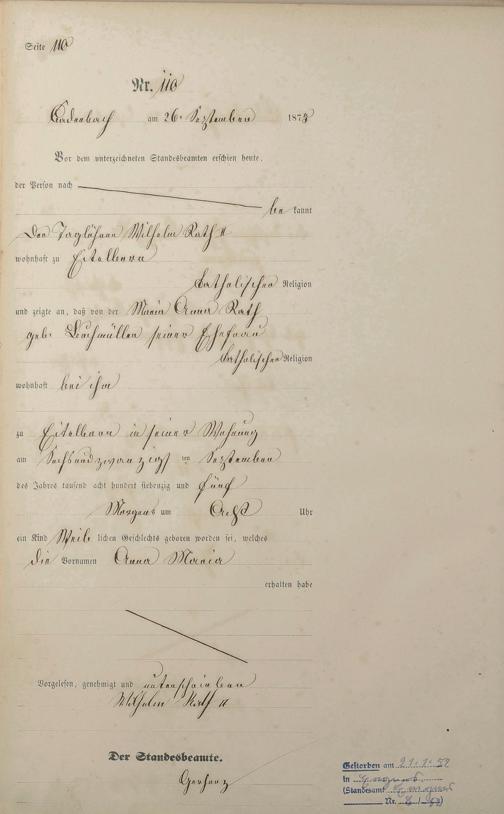 Seite 110
Nr. 110
Cadenbach am 26. September 1875
Vor dem unterzeichneten Standesbeamten erschien heute,
der Person nach
be kannt
Der Taglöhner Wilhelm Rath II
wohnhaft zu Eitelborn
katholischer Religion
und zeigte an, daß von der Maria Anna Rath
geb. seiner Ehefrau
katholischer Religion
wohnhaft bei ihm
zu Eitelborn in seiner Wohnung
am Sechsundzwanzigsten September
des Jahres tausend acht hundert siebenzig und fünf
Morgens um Acht Uhr
ein Kind Weib lichen Geschlechts geboren worden sei, welches
die Vornamen Anna Maria
erhalten habe
Vorgelesen, genehmigt und unterschrieben
Wilhelm Rath II
Der Standesbeamte.
Gerharz
Gestorben am 21.1.52
in
(Standesamt
Nr.